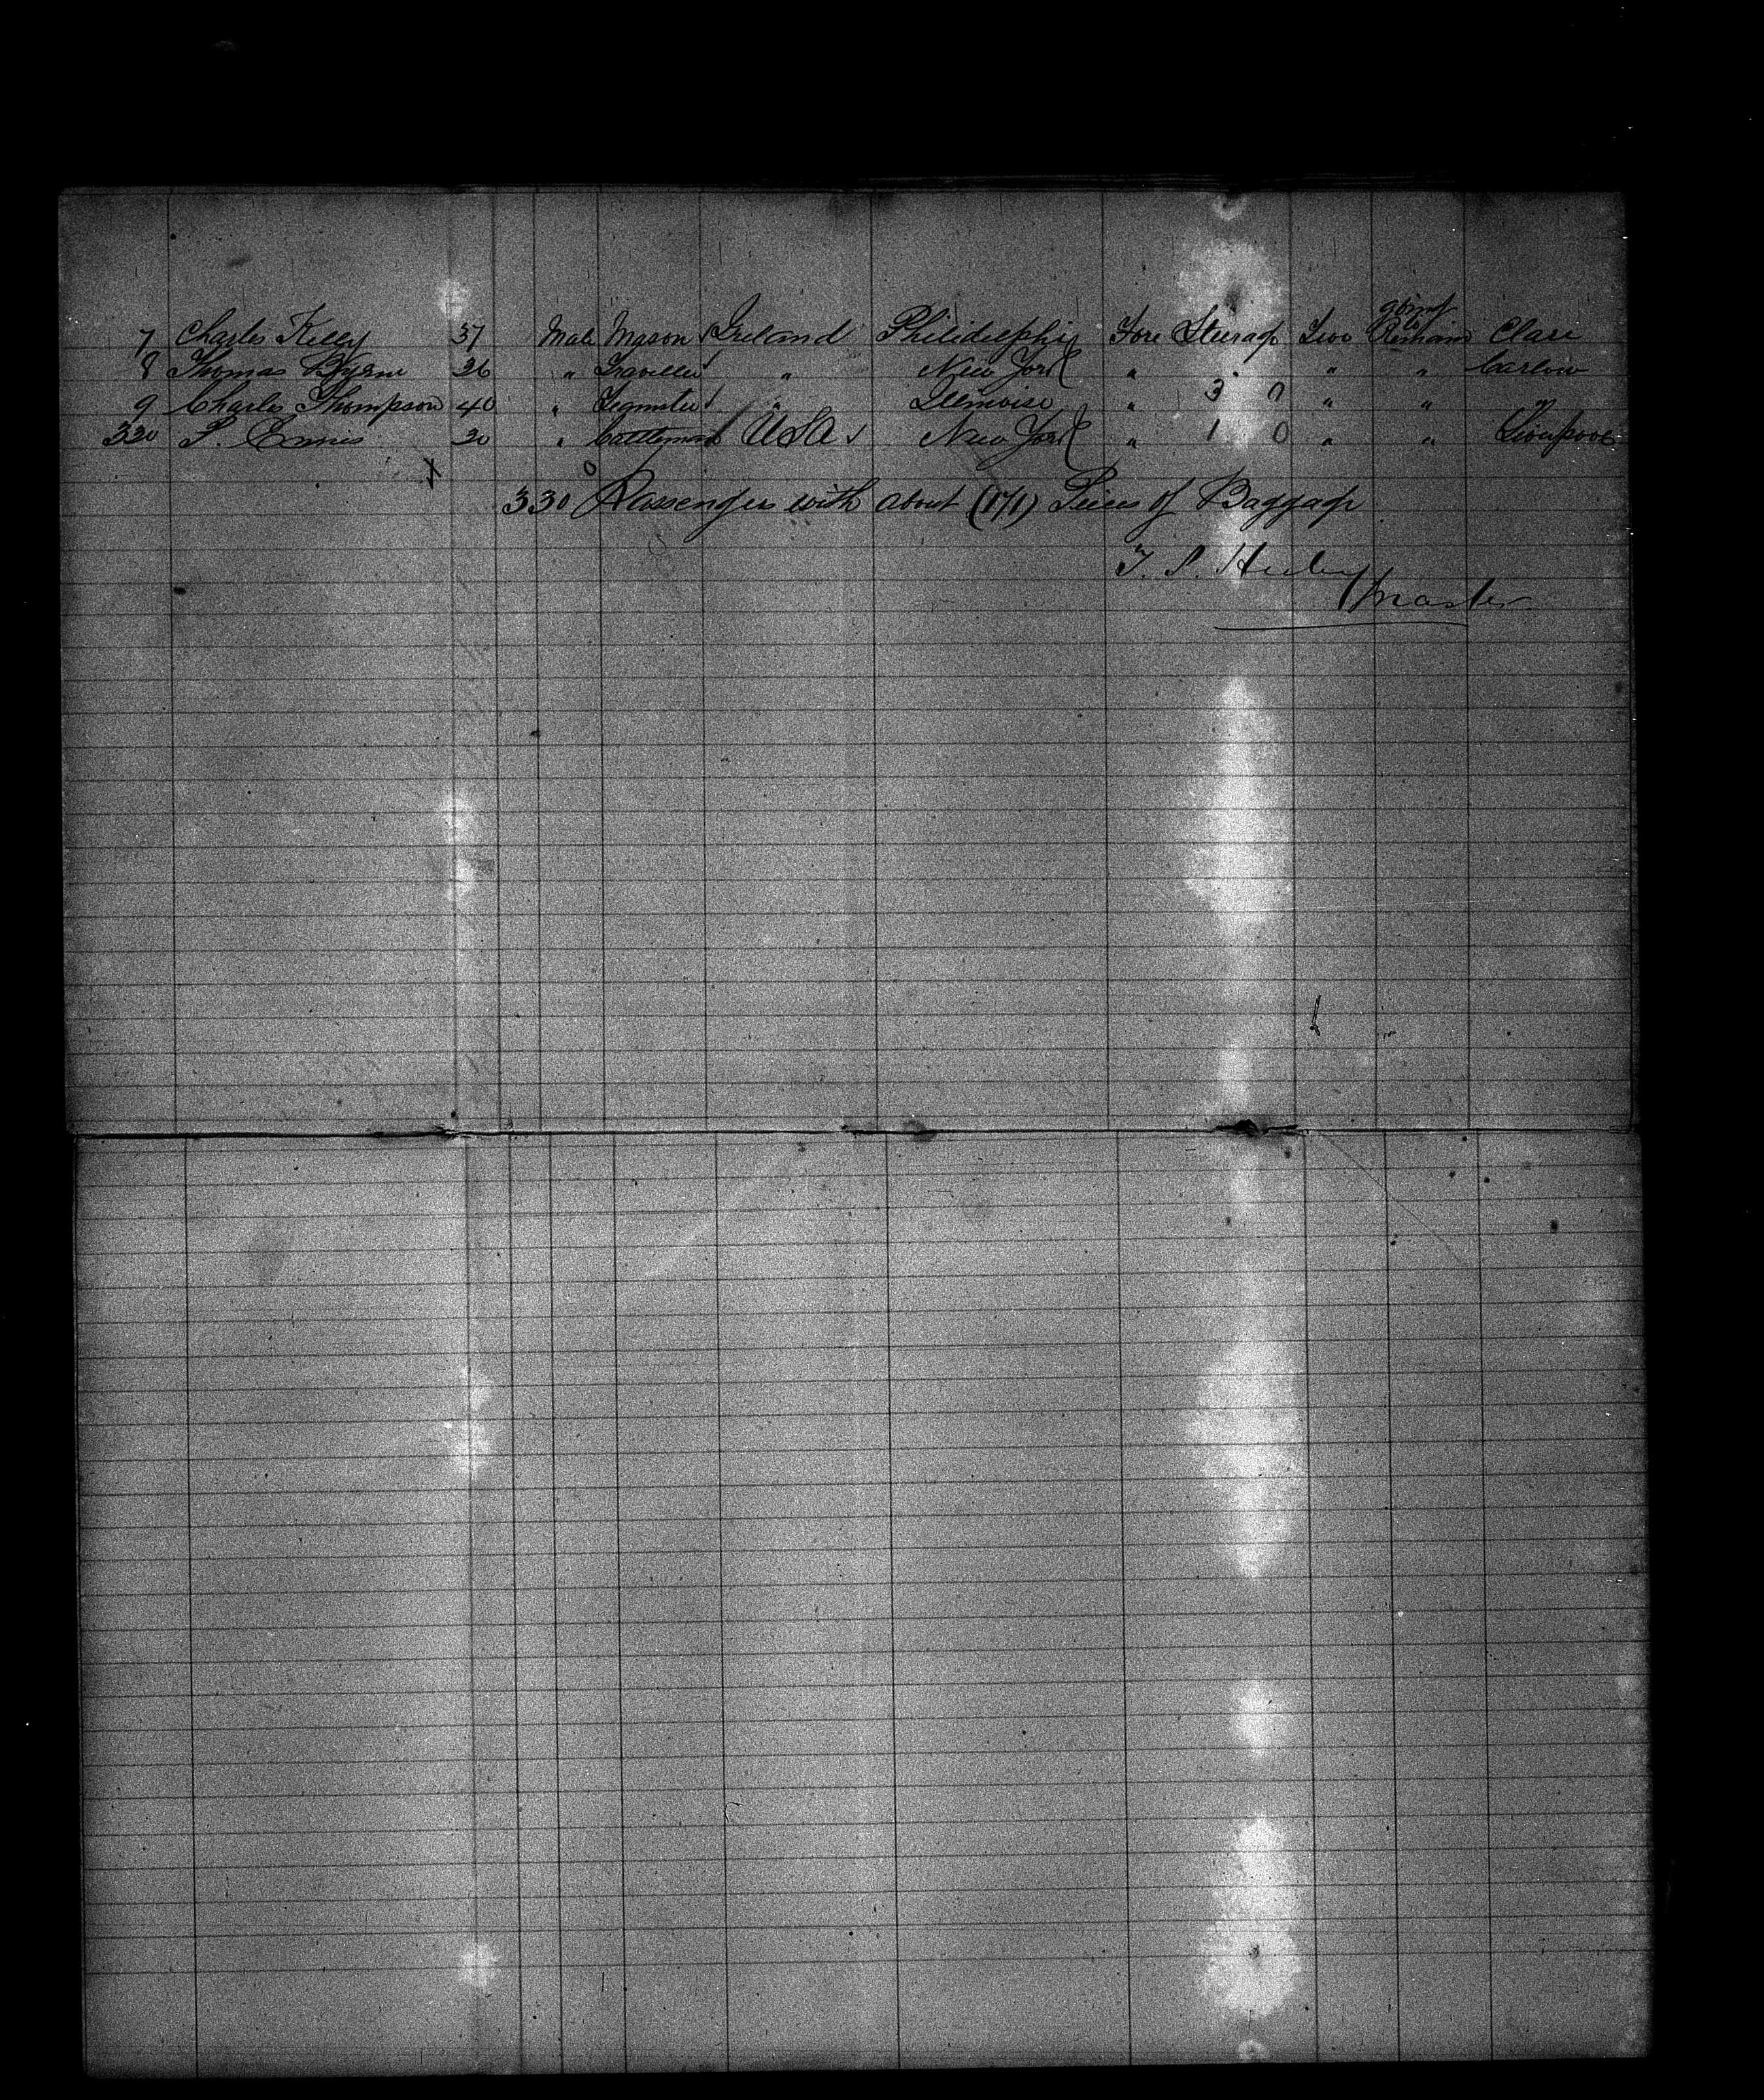 going to
7 Charles Kelly 37 Male Mason Ireland Philidelphia Fore Steerage Two Remain Clare
8 Thomas Byrne 26 " Traveller " New York " " " Carlow
9 Charles Thompson 40 " Teamster " Illinoise " 3 0 " " "
320 P. Ennis 20 " Cattleman USA New York " 1 0 " " Liverpool
330 Passengers with about (171) Pieces of Baggage
T. P. Master